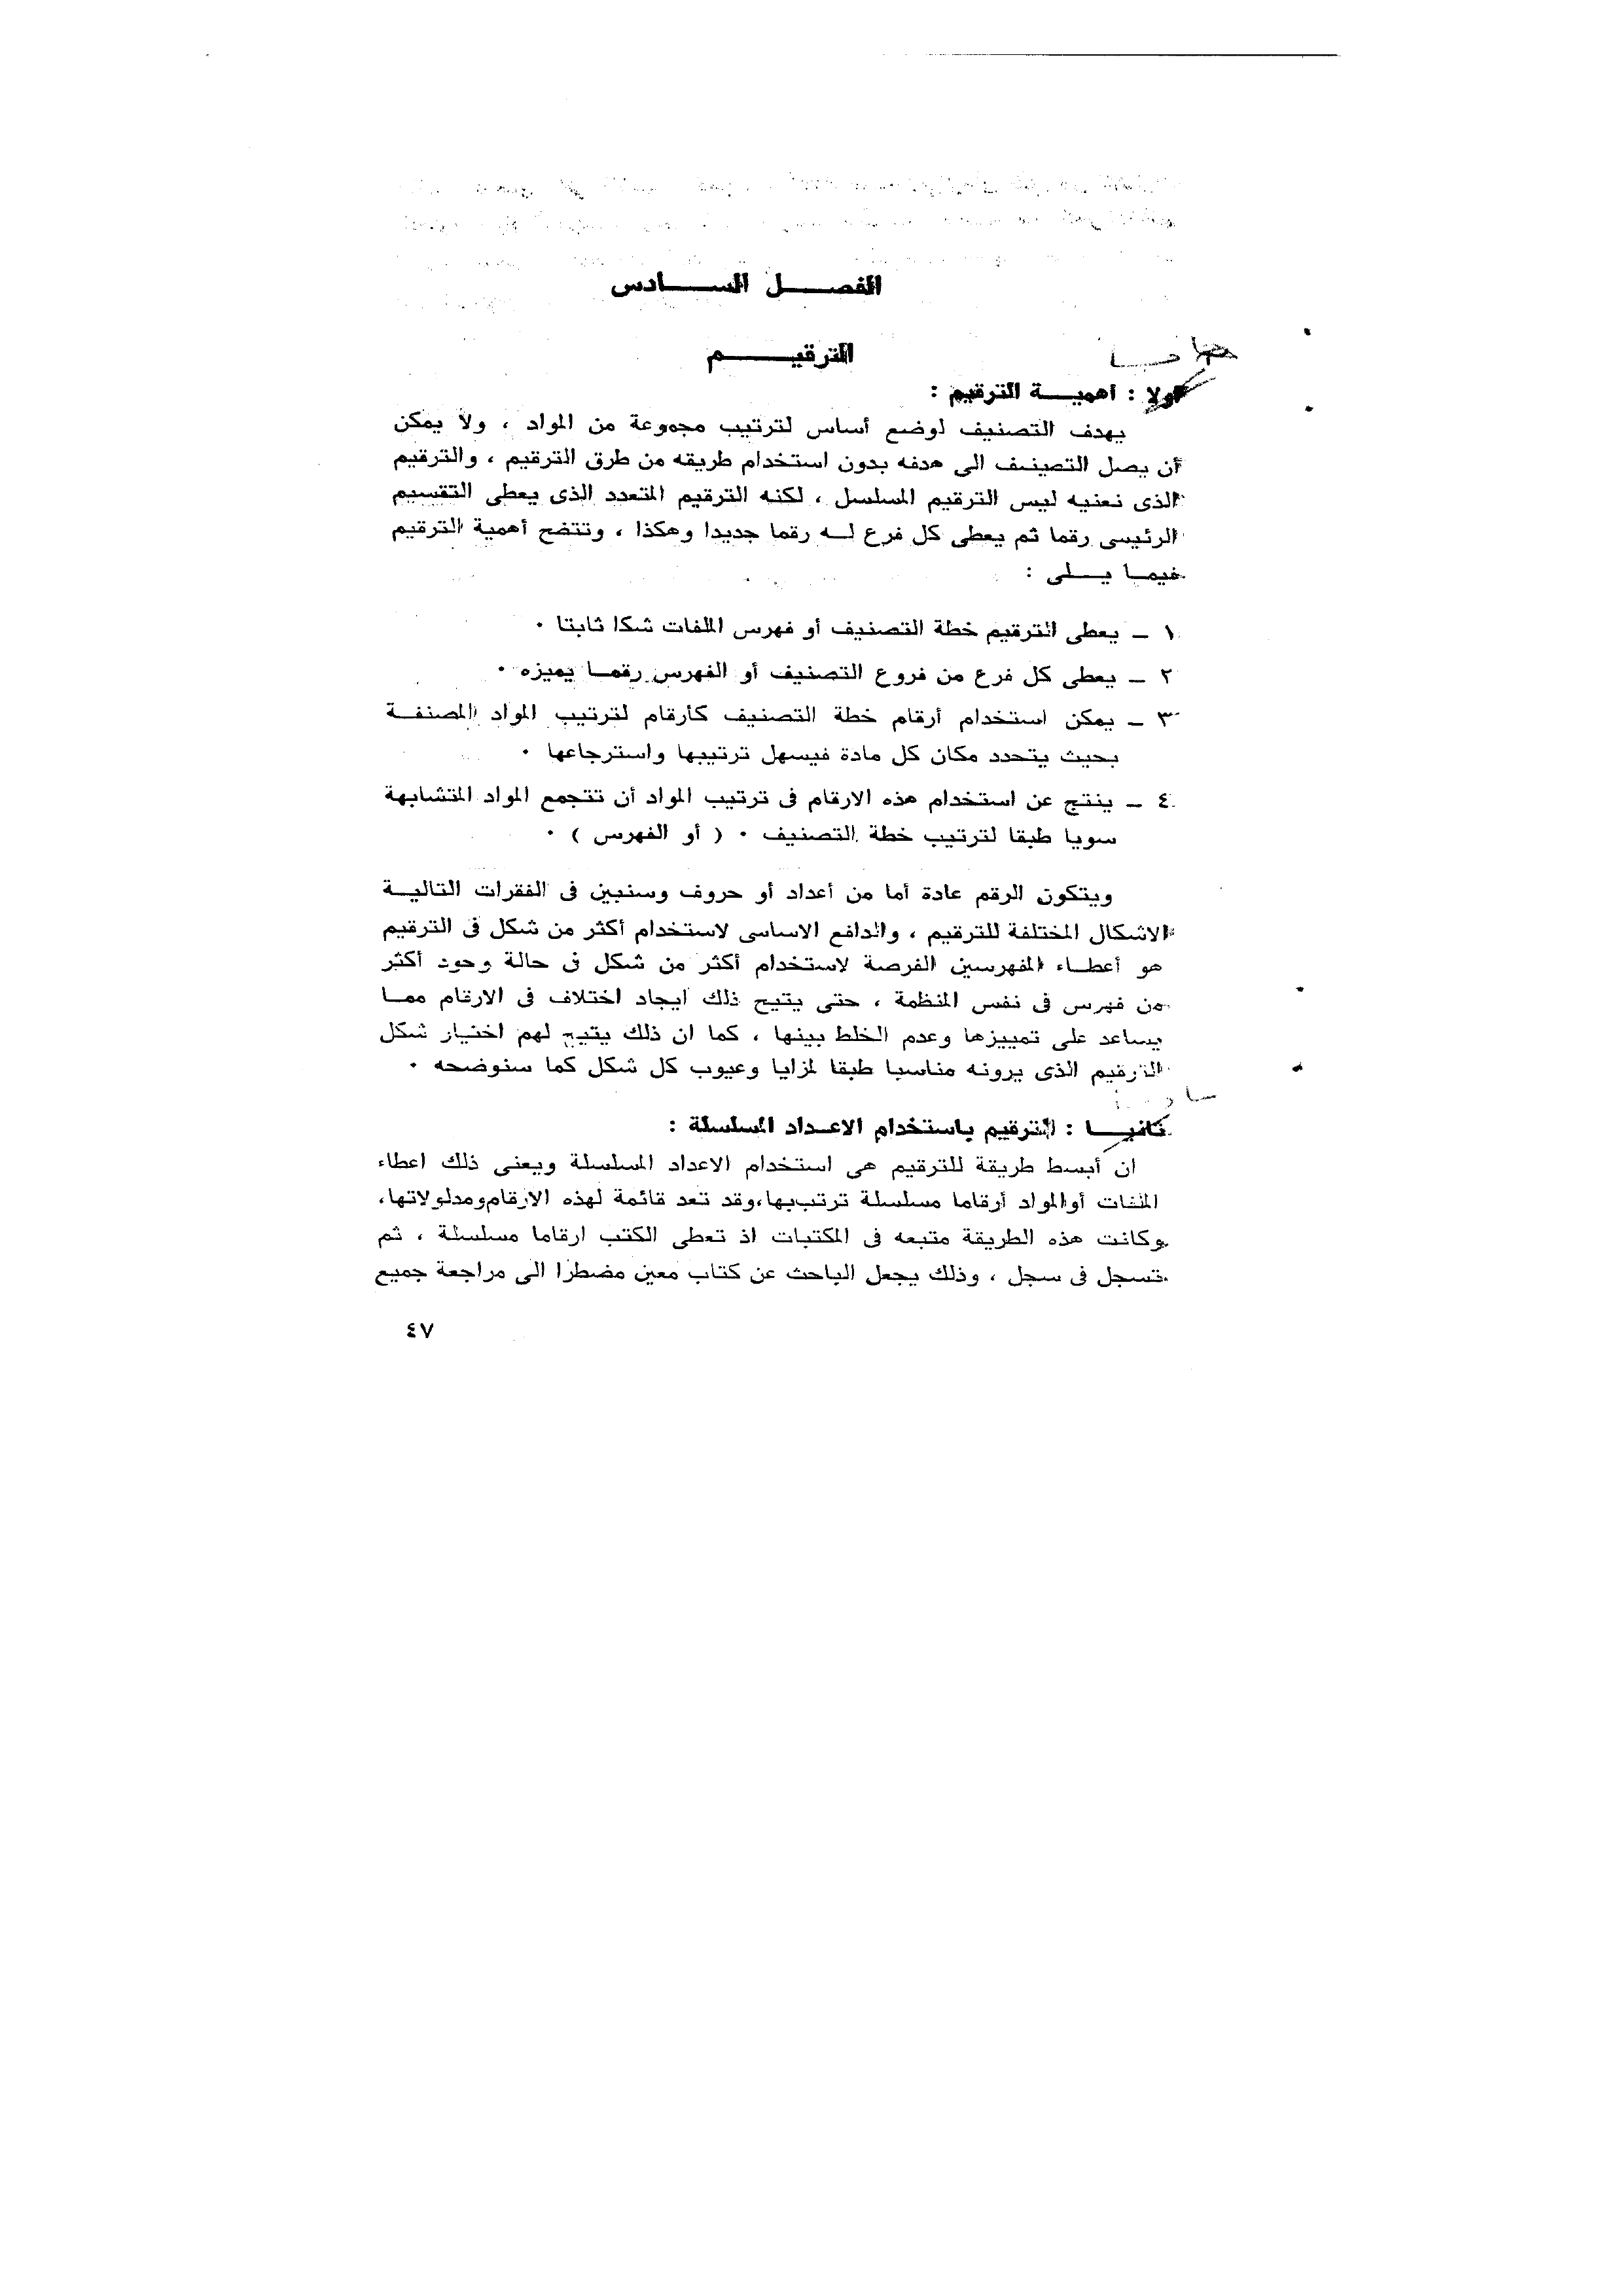 الفصل السادس
الترقيم
أولا : أهمية الترقيم :
يهدف التصنيف لوضع أساس لترتيب مجموعة من المواد ، ولا يمكن
أن يصل التصنيف الى هدفه بدون استخدام طريقه من طرق الترقيم ، والترقيم
الذى نعنيه ليس الترقيم المسلسل ، لكنه الترقيم المتعدد الذى يعطى التقسيم
الرئيسى رقما ثم يعطى كل فرع له رقما جديدا وهكذا ، وتتضح أهمية الترقيم
فيما يلى :
١ – يعطى الترقيم خطة التصنيف أو فهرس الملفات شكا ثابتا ٠
٢ – يعطى كل فرع من فروع التصنيف أو الفهرس رقما يميزه ٠
٣ – يمكن استخدام أرقام خطة التصنيف كأرقام لترتيب المواد المصنفة
بحيث يتحدد مكان كل مادة فيسهل ترتيبها واسترجاعها ٠
٤ – ينتج عن استخدام هذه الارقام فى ترتيب المواد أن تتجمع المواد المتشابهة
سويا طبقا لترتيب خطة التصنيف ٠ ( أو الفهرس ) ٠
ويتكون الرقم عادة أما من أعداد أو حروف وسنبين فى الفقرات التالية
الاشكال المختلفة للترقيم ، والدافع الاساسى لاستخدام أكثر من شكل فى الترقيم
هو أعطاء المفهرسين الفرصة لاستخدام أكثر من شكل فى حالة وجود أكثر
من فهرس فى نفس المنظمة ، حتى يتيح ذلك ايجاد اختلاف فى الارقام مما
يساعد على تمييزها وعدم الخلط بينها ، كما ان ذلك يتيح لهم اختيار شكل
الترقيم الذى يرونه مناسبا طبقا لمزايا وعيوب كل شكل كما سنوضحه ٠
ثانيا : الترقيم باستخدام الاعداد المسلسلة :
ان أبسط طريقة للترقيم هى استخدام الاعداد المسلسلة ويعنى ذلك اعطاء
الملفات أوالمواد أرقاما مسلسلة ترتب‌بها،وقد تعد قائمة لهذه الارقام‌ومدلولاتها،
وكانت هذه الطريقة متبعه فى المكتبات اذ تعطى الكتب ارقاما مسلسلة ، ثم
تسجل فى سجل ، وذلك يجعل الباحث عن كتاب معين مضطرا الى مراجعة جميع
٤٧